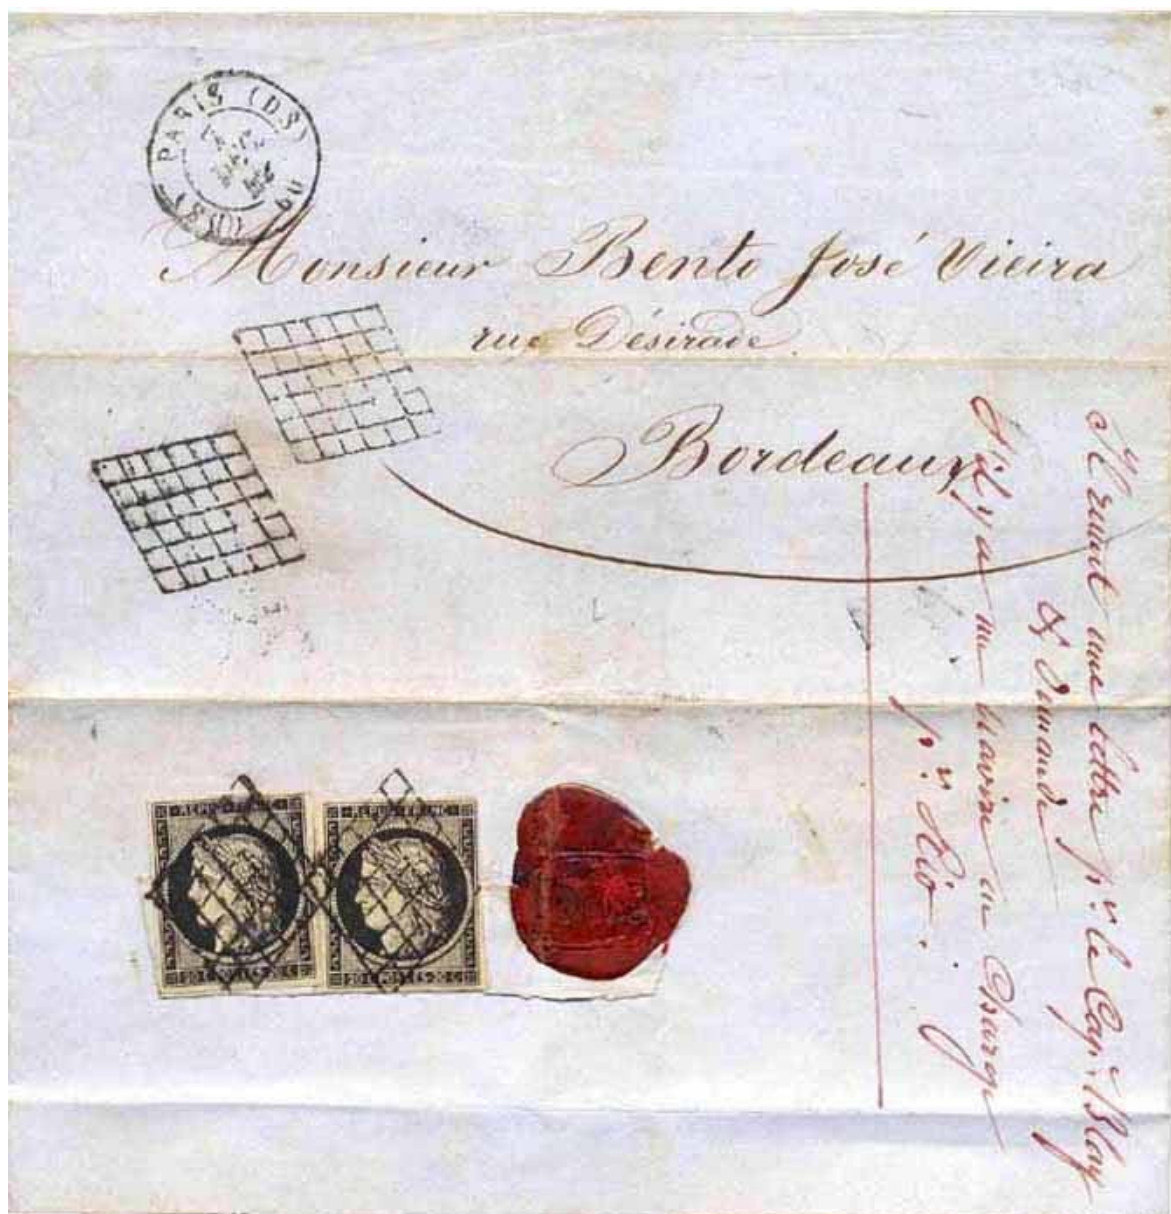 PARIS (DS)
(DS) 60
Monsieur Bento José Vieira
rue Désirade.
Bordeaux
une lettre pr. le Cap. Blay
& demande
S'il y a un navire en Charge
pr. Rio.
REPUB FRANC
REPUB FRANC
20 C POSTES 20 C
20 C POSTES 20 C